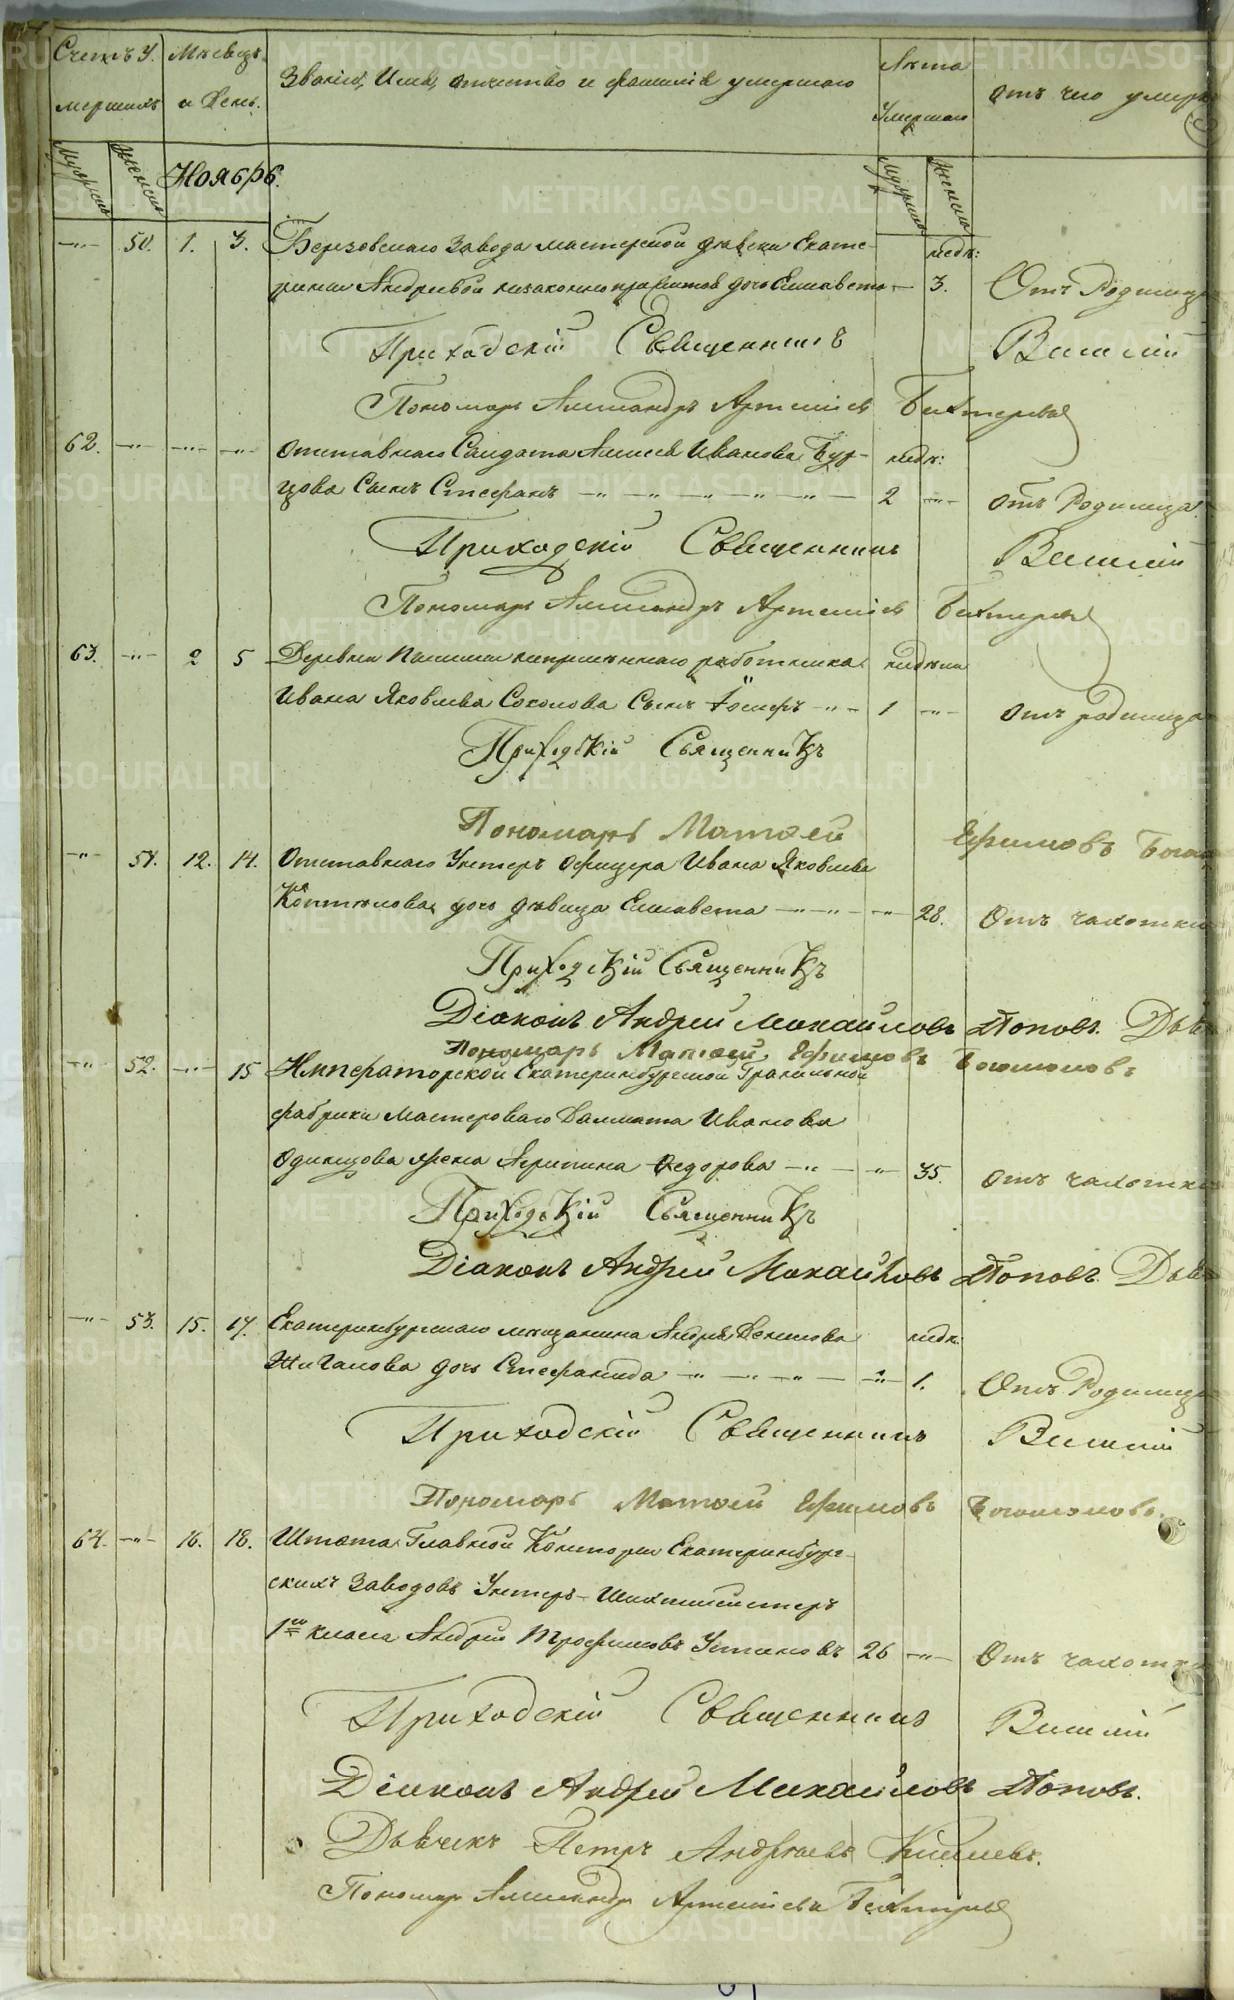 Счетъ У-
мершихъ
Мѣсяцъ
и День.
Званіе, Имя, отчество и фамилія умершаго
Лѣта
Умершаго
отъ чего умеръ
Мужескъ
Женскъ
Ноябрь.
Мужескъ
Женскъ
50. 1. 3. Березовскаго Завода мастерской дѣвки Екате- недѣ:
рины Андреевой незаконноприжитая дочь Елисавета 3. Отъ Родимца
Приходскій Священникъ Василій
Пономарь Александръ Артеміевъ Бехтеревъ
62. Отставнаго Солдата Алексѣя Иванова Бур- недѣ:
цова Сынъ Стефанъ 2 отъ Родимца
Приходскій Священникъ Василій
Пономарь Александръ Артеміевъ Бехтеревъ
63. 2 5 Деревни непремѣннаго работника недѣли
Ивана Яковлева Соколова Сынъ Іосифъ 1 отъ родимца
Приходскій Священникъ
Пономарь Матѳей Ефимовъ
51. 12. 14. Отставнаго Унтеръ Офицера Ивана Яковлева
Коптелова дочь дѣвица Елисавета 28. Отъ чахотки
Приходскій Священникъ
Діаконъ Андрей Михайловъ Поповъ.
Пономарь Матѳей Ефимовъ
52. 15 Императорской Екатеринбургской Гранильной
фабрики Мастероваго Далмата Иванова
Одинцова жена Агрипина Ѳедорова 35. отъ чахотки
Приходскій Священникъ
Діаконъ Андрей Михайловъ Поповъ.
53. 15. 17. Екатеринбургскаго мѣщанина Андрея Денисова недѣ:
Жигалова дочь Стефанида 1. Отъ Родимца
Приходскій Священникъ Василій
Пономарь Матѳей Ефимовъ
64. 16. 18. Штата Главной Конторы Екатеринбург-
скихъ Заводовъ Унтеръ-Шихтмейстеръ
1го класа Андрей Трофимовъ Устиновъ 26 Отъ чахотки
Приходскій Священникъ Василій
Діаконъ Андрей Михайловъ Поповъ.
Дьячекъ Петръ Андреевъ Киселевъ.
Пономарь Александръ Артеміевъ Бехтеревъ
METRIKI.GASO-URAL.RU